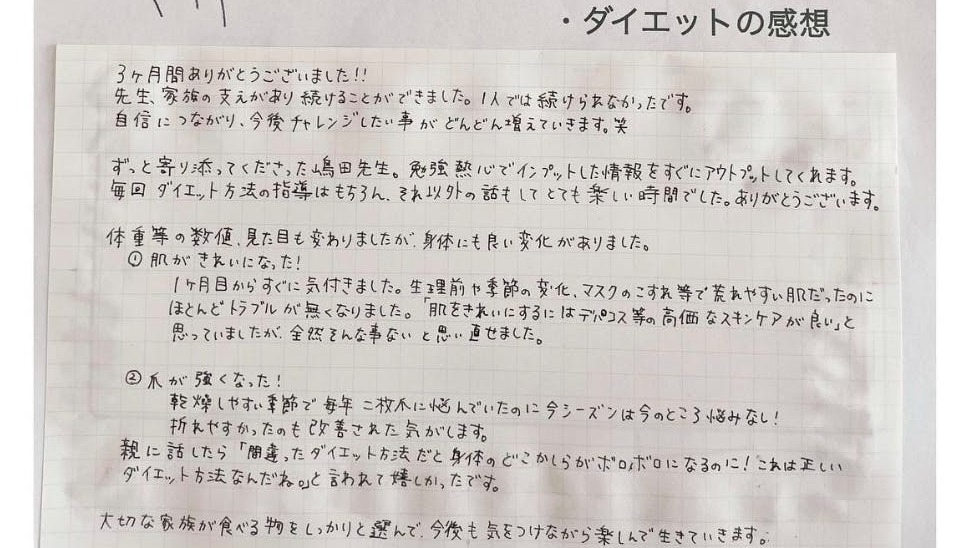 ・ダイエットの感想
3ヶ月間ありがとうございました!!
先生、家族の支えがあり続けることができました。1人では続けられなかったです。
自信につながり、今後チャレンジしたい事がどんどん増えていきます。笑
ずっと寄り添ってくださった嶋田先生。勉強熱心でインプットした情報をすぐにアウトプットしてくれます。
毎回ダイエット方法の指導はもちろん、それ以外の話もしてとても楽しい時間でした。ありがとうございます。
体重等の数値、見た目も変わりましたが、身体にも良い変化がありました。
①肌がきれいになった!
1ヶ月目からすぐに気付きました。生理前や季節の変化、マスクのこすれ等で荒れやすい肌だったのに
ほとんどトラブルが無くなりました。「肌をきれいにするにはデパコス等の高価なスキンケアが良い」と
思っていましたが、全然そんな事ないと思い直せました。
②爪が強くなった!
乾燥しやすい季節で毎年二枚爪に悩んでいたのに今シーズンは今のところ悩みなし!
折れやすかったのも改善された気がします。
親に話したら「間違ったダイエット方法だと身体のどこかしらがボロボロになるのに!これは正しい
ダイエット方法なんだね。」と言われて嬉しかったです。
大切な家族が食べる物をしっかりと選んで、今後も気をつけながら楽しんで生きていきます。